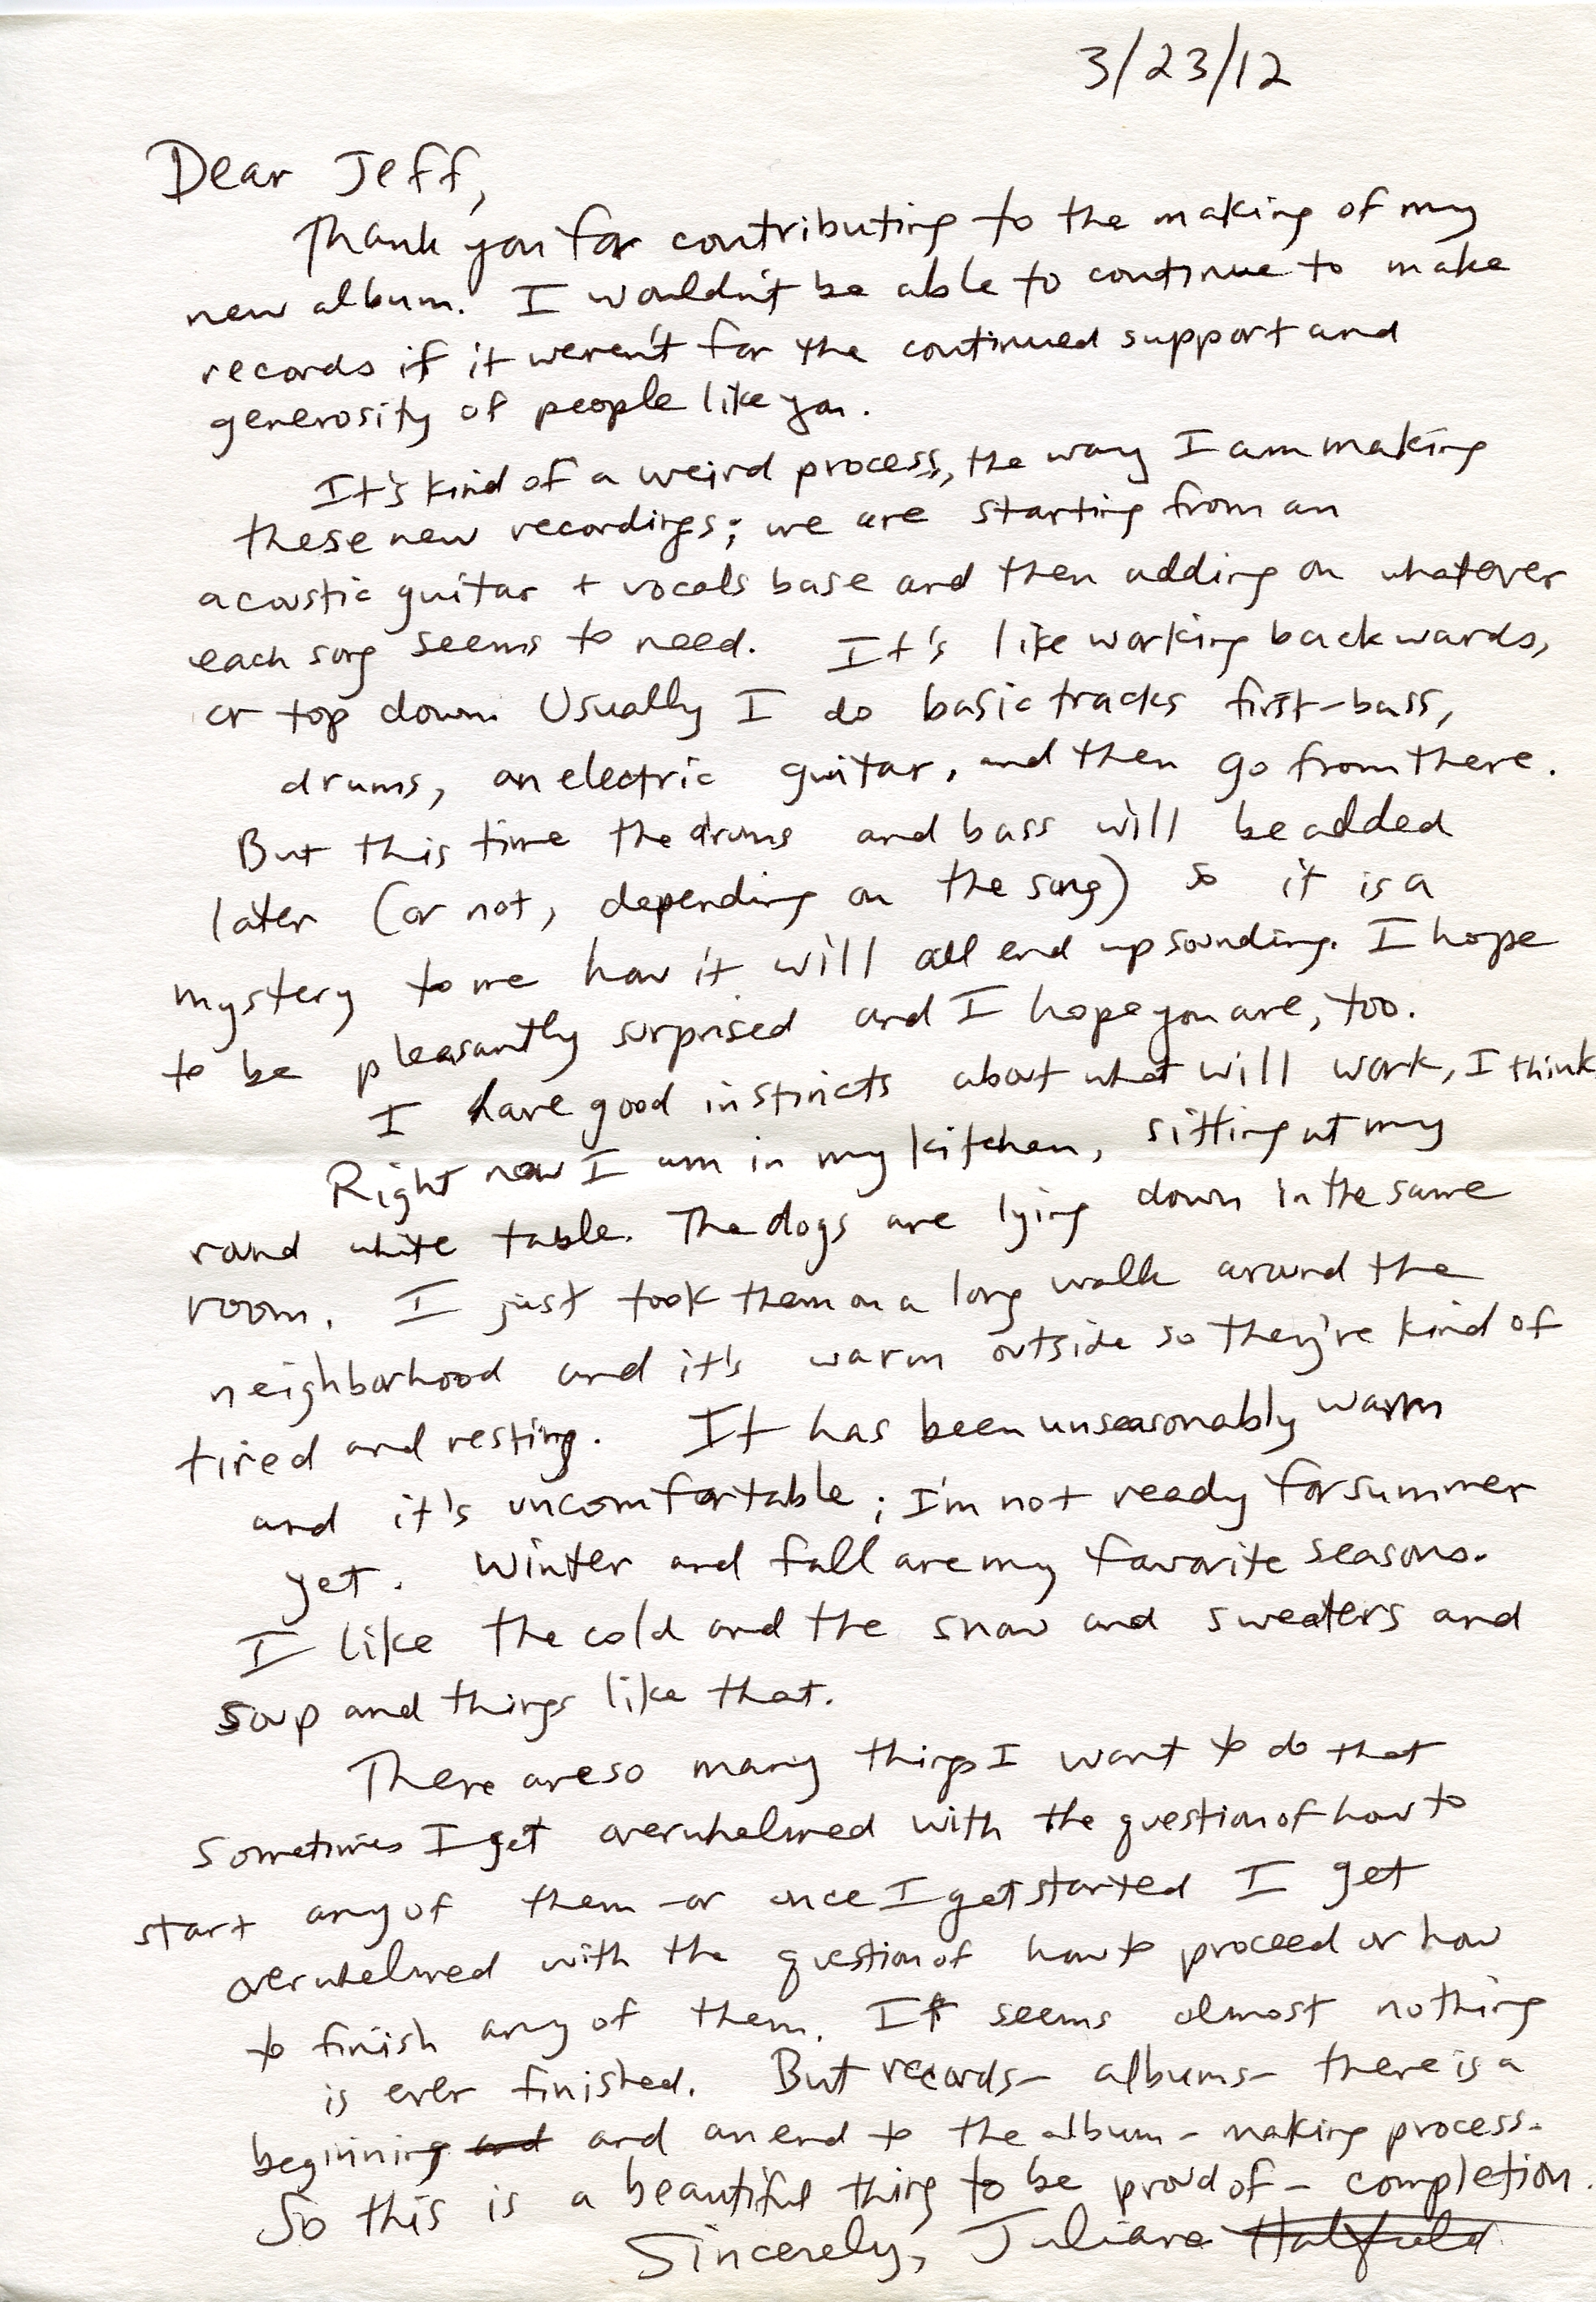 3/23/12
Dear Jeff,
Thank you for contributing to the making of my
new album. I wouldn't be able to continue to make
records if it weren't for the continued support and
generosity of people like you.
It's kind of a weird process, the way I am making
these new recordings; we are starting from an
acoustic guitar + vocals base and then adding on whatever
each song seems to need. It's like working backwards,
or top down. Usually I do basic tracks first - bass,
drums, an electric guitar, and then go from there.
But this time the drums and bass will be added
later (or not, depending on the song) so it is a
mystery to me how it will all end up sounding. I hope
to be pleasantly surprised and I hope you are, too.
I have good instincts about what will work, I think
Right now I am in my kitchen, sitting at my
round white table. The dogs are lying down in the same
room. I just took them on a long walk around the
neighborhood and it's warm outside so they're kind of
tired and resting. It has been unseasonably warm
and it's uncomfortable; I'm not ready for summer
yet. Winter and fall are my favorite seasons.
I like the cold and the snow and sweaters and
soup and things like that.
There are so many things I want to do that
sometimes I get overwhelmed with the question of how to
start any of them - or once I get started I get
overwhelmed with the question of how to proceed or how
to finish any of them. It seems almost nothing
is ever finished. But records - albums - there is a
beginning and and an end to the album-making process.
So this is a beautiful thing to be proud of - completion.
Sincerely, Juliana Hatfield